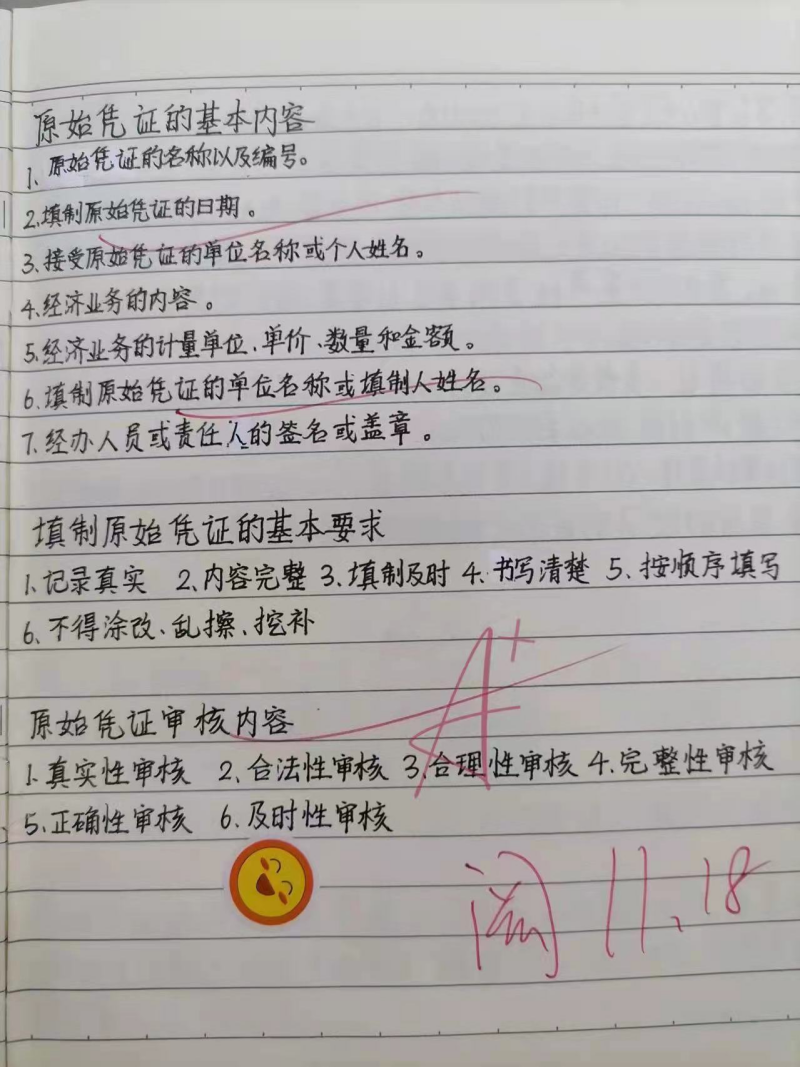 原始凭证的基本内容
1、原始凭证的名称以及编号。
2、填制原始凭证的日期。
3、接受原始凭证的单位名称或个人姓名。
4、经济业务的内容。
5、经济业务的计量单位、单价、数量和金额。
6、填制原始凭证的单位名称或填制人姓名。
7、经办人员或责任人的签名或盖章。
填制原始凭证的基本要求
1、记录真实 2、内容完整 3、填制及时 4、书写清楚 5、按顺序填写
6、不得涂改、乱擦、挖补
A+
原始凭证审核内容
1、真实性审核 2、合法性审核 3、合理性审核 4、完整性审核
5、正确性审核 6、及时性审核
阅 11.18